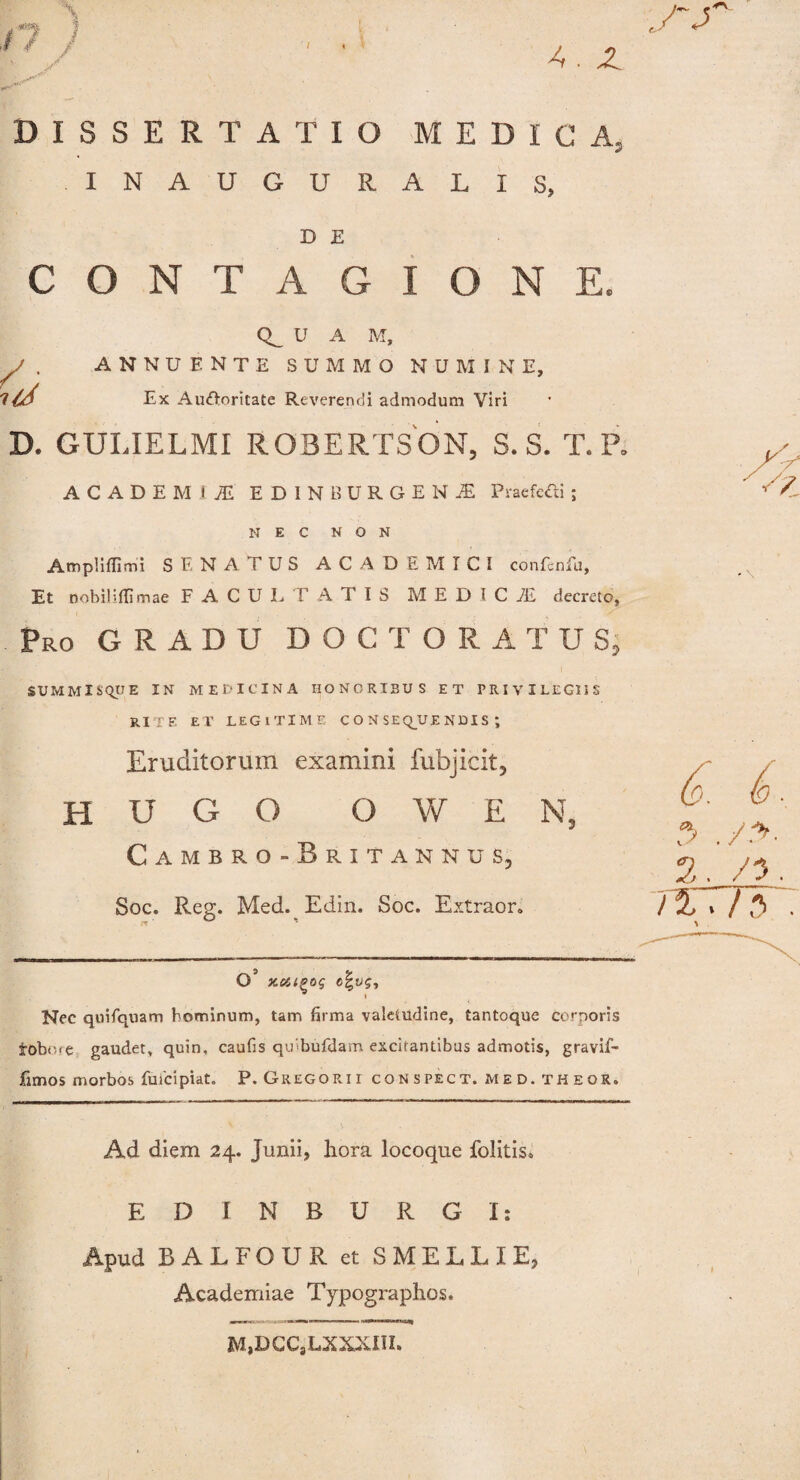 17)
4. 2
DISSERTATIO MEDICA,
INAUGURALIS,
DE
CONTAGIONE.
QUAM,
ANNUENTE SUMMO NUMINE,
Ex Auctoritate Reverendi admodum Viri
D. GULIELMI ROBERTSON, S. S. T. P.
ACADEMIÆ EDINBURGENÆ Praefecti;
NEC NON
Ampliſſimi SENATUS ACADEMICI conſenſu,
Et nobiliſſimae FACULTATIS MEDICÆ decreto,
PRO GRADU DOCTORATUS,
SUMMISQUE IN MEDICINA HONORIBUS ET PRIVILEGIIS
RITE ET LEGITIME CONSEQUENDIS;
Eruditorum examini ſubjicit,
HUGO OWEN,
CAMBRO-BRITANNUS,
Soc. Reg. Med. Edin. Soc. Extraor.
6. 6.
3. 13.
2. 13.
12. 13.
Ο᾽ καιρος οξυς,
Nec quiſquam hominum, tam firma valetudine, tantoque corporis
robore gaudet, quin, cauſis quibuſdam excitantibus admotis, graviſ-
ſimos morbos ſuſcipiat. P. GREGORII CONSPECT. MED. THEOR.
Ad diem 24. Junii, hora locoque ſolitis.
EDINBURGI:
Apud BALFOUR et SMELLIE,
Academiae Typographos.
M,DCC,LXXXIII.